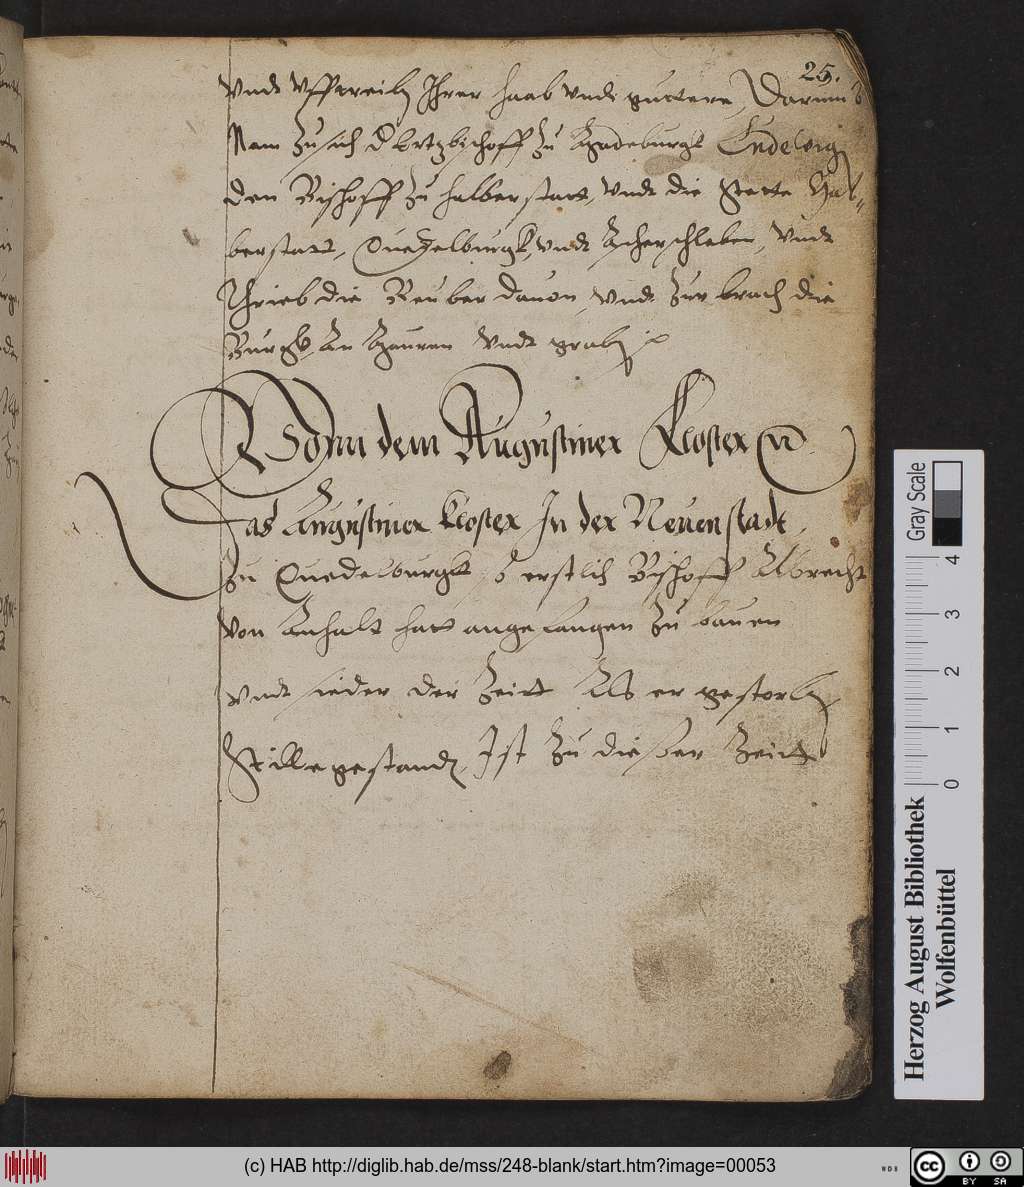 25.
vnds vfftreiben Ihrer haab vnds guttern, Darumb
Nam zu sich d Ertzbischoff zu Magdeburgk Ludewig
den Bischoff zu halberstatt, vnds die Stette Hal-
berstatt, Quedelburgk, vnds Ascherschleben, vnds
thrieb die Reuber dauon, vnds zur brach die
Burgk an Mauren vnds graben
Vonn dem Augustiner Kloster
Das Augustiner Kloster In der Neuenstadt,
zu Quedelburgk so erstlich Bischoff Albrecht
von Anhalt hatt angefangen zu bauen
vnds sieder der Zeitt Als er gestorben
Stille gestanden, Ist zu dießer Zeitt
Gray Scale
0 1 2 3 4
Herzog August Bibliothek
Wolfenbüttel
(c) HAB http://diglib.hab.de/mss/248-blank/start.htm?image=00053
WDB
cc BY SA